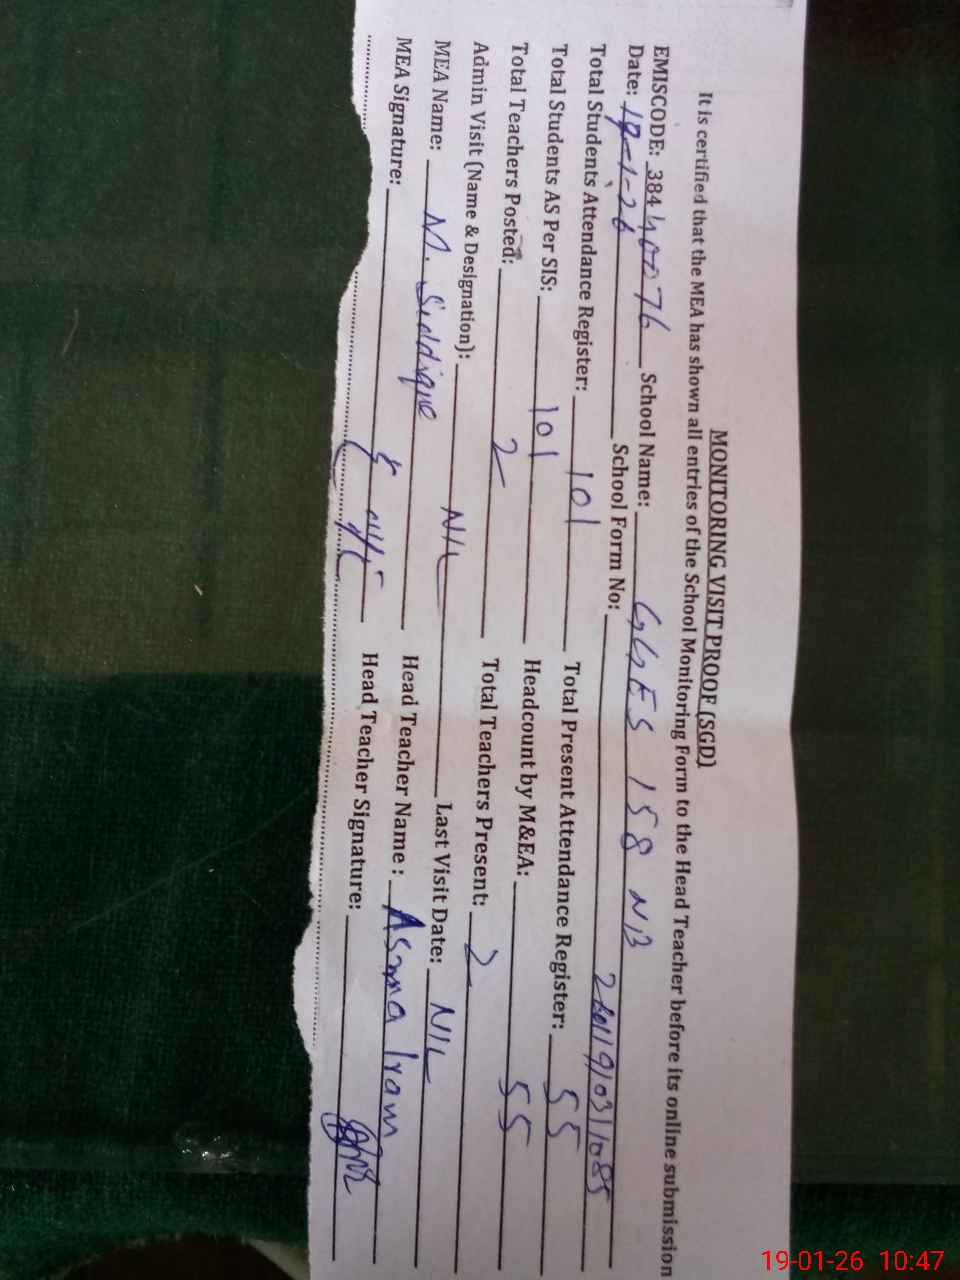 MONITORING VISIT PROOF (SGD)
It is certified that the MEA has shown all entries of the School Monitoring Form to the Head Teacher before its online submission
EMISCODE: 38440076 School Name: GGES 158 NB
Date: 19-1-26 School Form No:
Total Students Attendance Register: 101 Total Present Attendance Register: 55
Total Students AS Per SIS: 101 Headcount by M&EA: 55
Total Teachers Posted: 2 Total Teachers Present: 2
Admin Visit (Name & Designation): NIL Last Visit Date: NIL
MEA Name: M. Siddique Head Teacher Name : Asma Iram
MEA Signature: Head Teacher Signature:
19-01-26 10:47